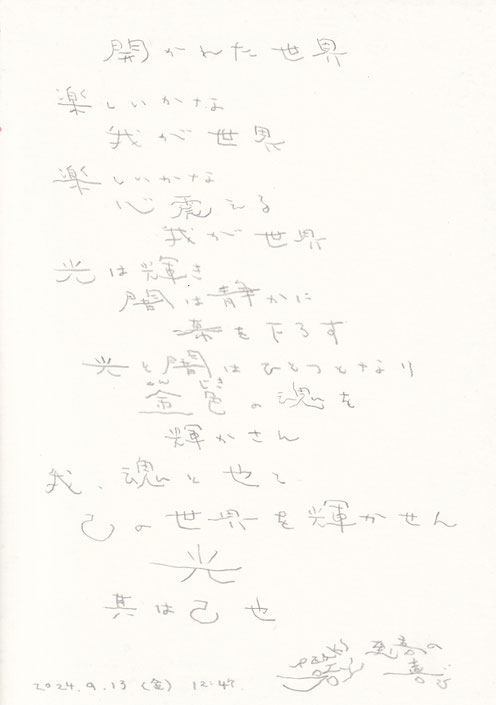 開かれた世界
楽しいかな
我が世界
楽しいかな
心震える
我が世界
光は輝き
闇は静かに
幕を下ろす
光と闇はひとつとなり
の魂を
輝かさん
我、魂と也て
己の世界を輝かせん
光
其は己也
2024.9.13 (金) 12:47.